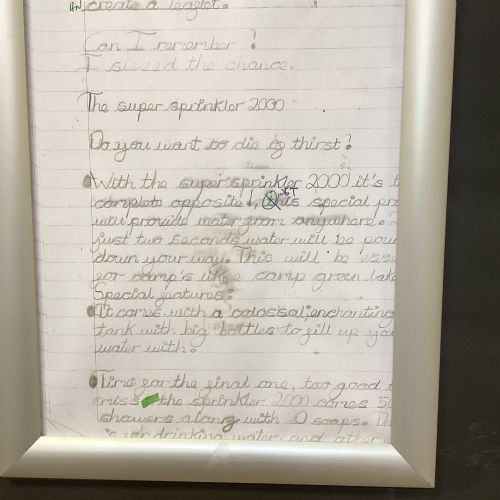 create a leaflet.
Can I remember ?
I siezed the chance.
The super sprinkler 2000
Do you want to die of thirst?
With the super sprinkler 2000 it's t
complete opposite! This special pro
will provide water from anywhere.
just two seconds water will be pour
down your way. This will be esse
for camp's like camp green lake
Special features:
It comes with a colossal, enchanting
tank with big bottles to fill up you
water with.
Time for the final one, too good t
miss the sprinkler 2000 comes 50
showers along with 10 soaps. Th
is for drinking water and other